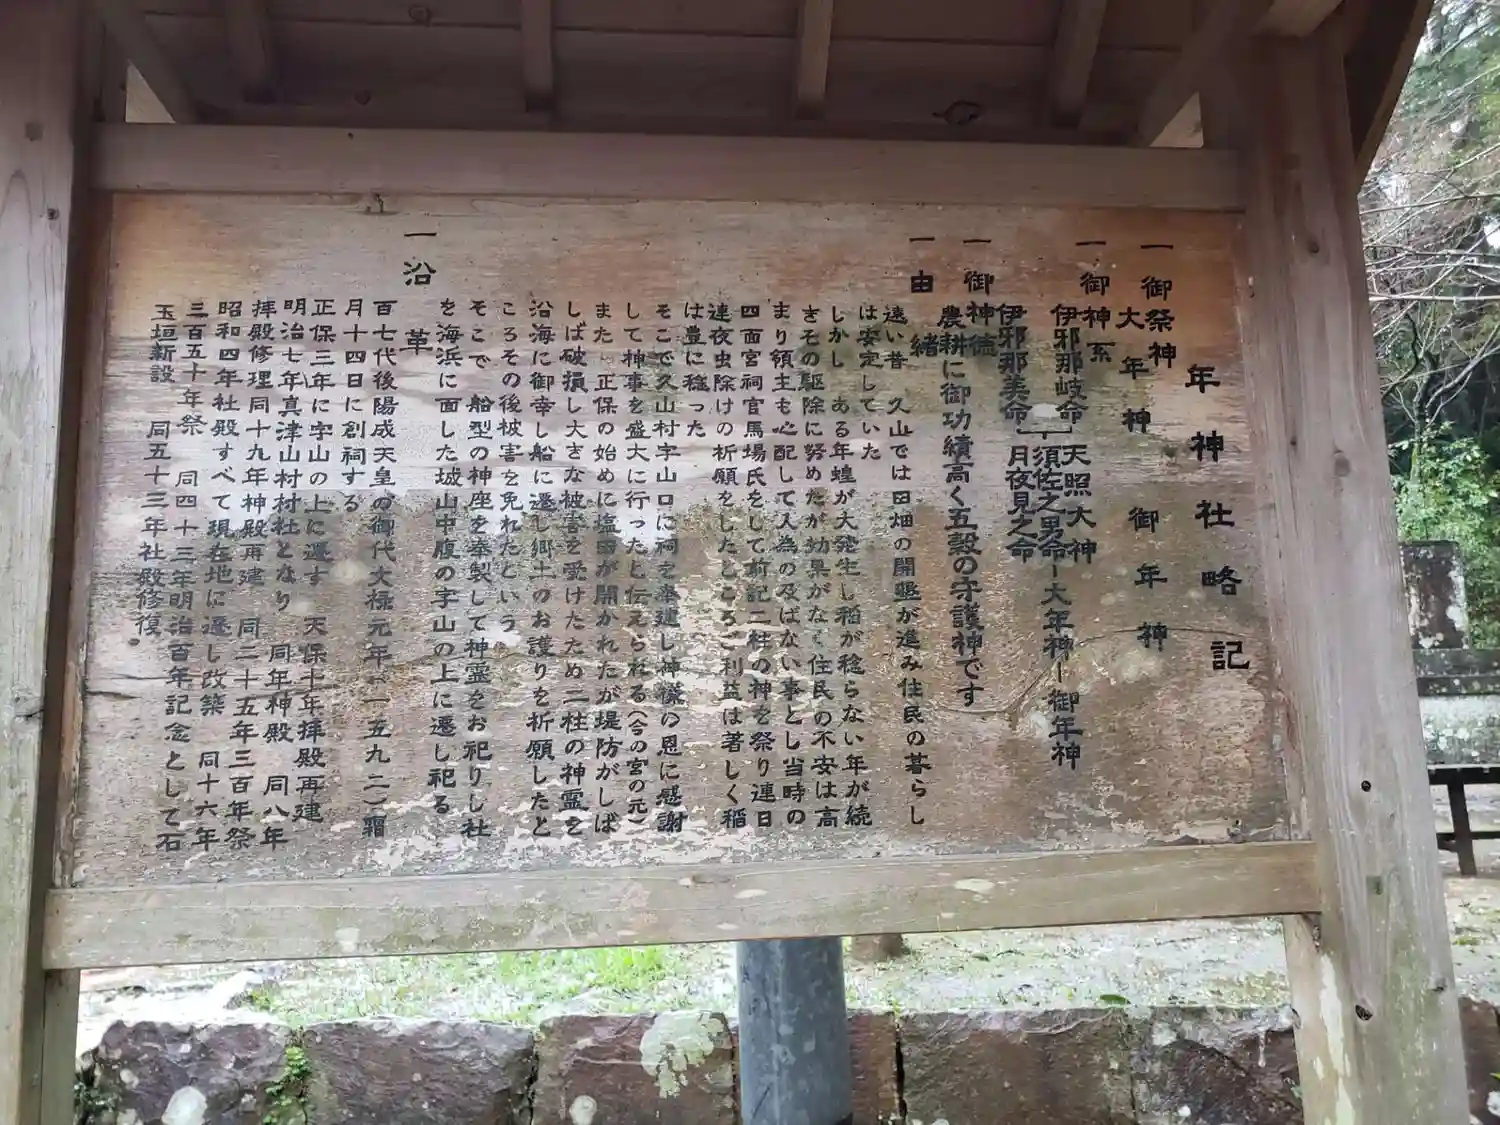 年神社略記
一 御祭神
大年神 御年神
一 御神系
伊邪那岐命 天照大神
須佐之男命ー大年神ー御年神
伊邪那美命 月夜見之命
一 御神徳
農耕に御功績高く五穀の守護神です
一 由緒
遠い昔 久山では田畑の開墾が進み住民の暮らし
は安定していた
しかし ある年蝗が大発生し稲が稔らない年が続
きその駆除に努めたが効果がなく住民の不安は高
まり領主も心配して人為の及ばない事とし当時の
四面宮祠官馬場氏をして前記二柱の神を祭り連日
連夜虫除けの祈願をしたところご利益は著しく稲
は豊に稔った
そこで久山村字山口に祠を奉建し神様の恩に感謝
して神事を盛大に行ったと伝えられる(今の宮の元)
また 正保の始めに塩田が開かれたが堤防がしば
しば破損し大きな被害を受けたため二柱の神霊を
沿海に御幸し船に遷し郷土のお護りを祈願したと
ころその後被害を免れたという
そこで 船型の神座を奉製して神霊をお祀りし社
を海浜に面した城山中腹の字山の上に遷し祀る
一 沿革
百七代後陽成天皇の御代文禄元年(一五九二)霜
月十四日に創祠する
正保三年に字山の上に遷す 天保十年拝殿再建
明治七年真津山村村社となり 同年神殿 同八年
拝殿修理同十九年神殿再建 同二十五年三百年祭
昭和四年社殿すべて現在地に遷し改築 同十六年
三百五十年祭 同四十三年明治百年記念として石
玉垣新設 同五十三年社殿修復。